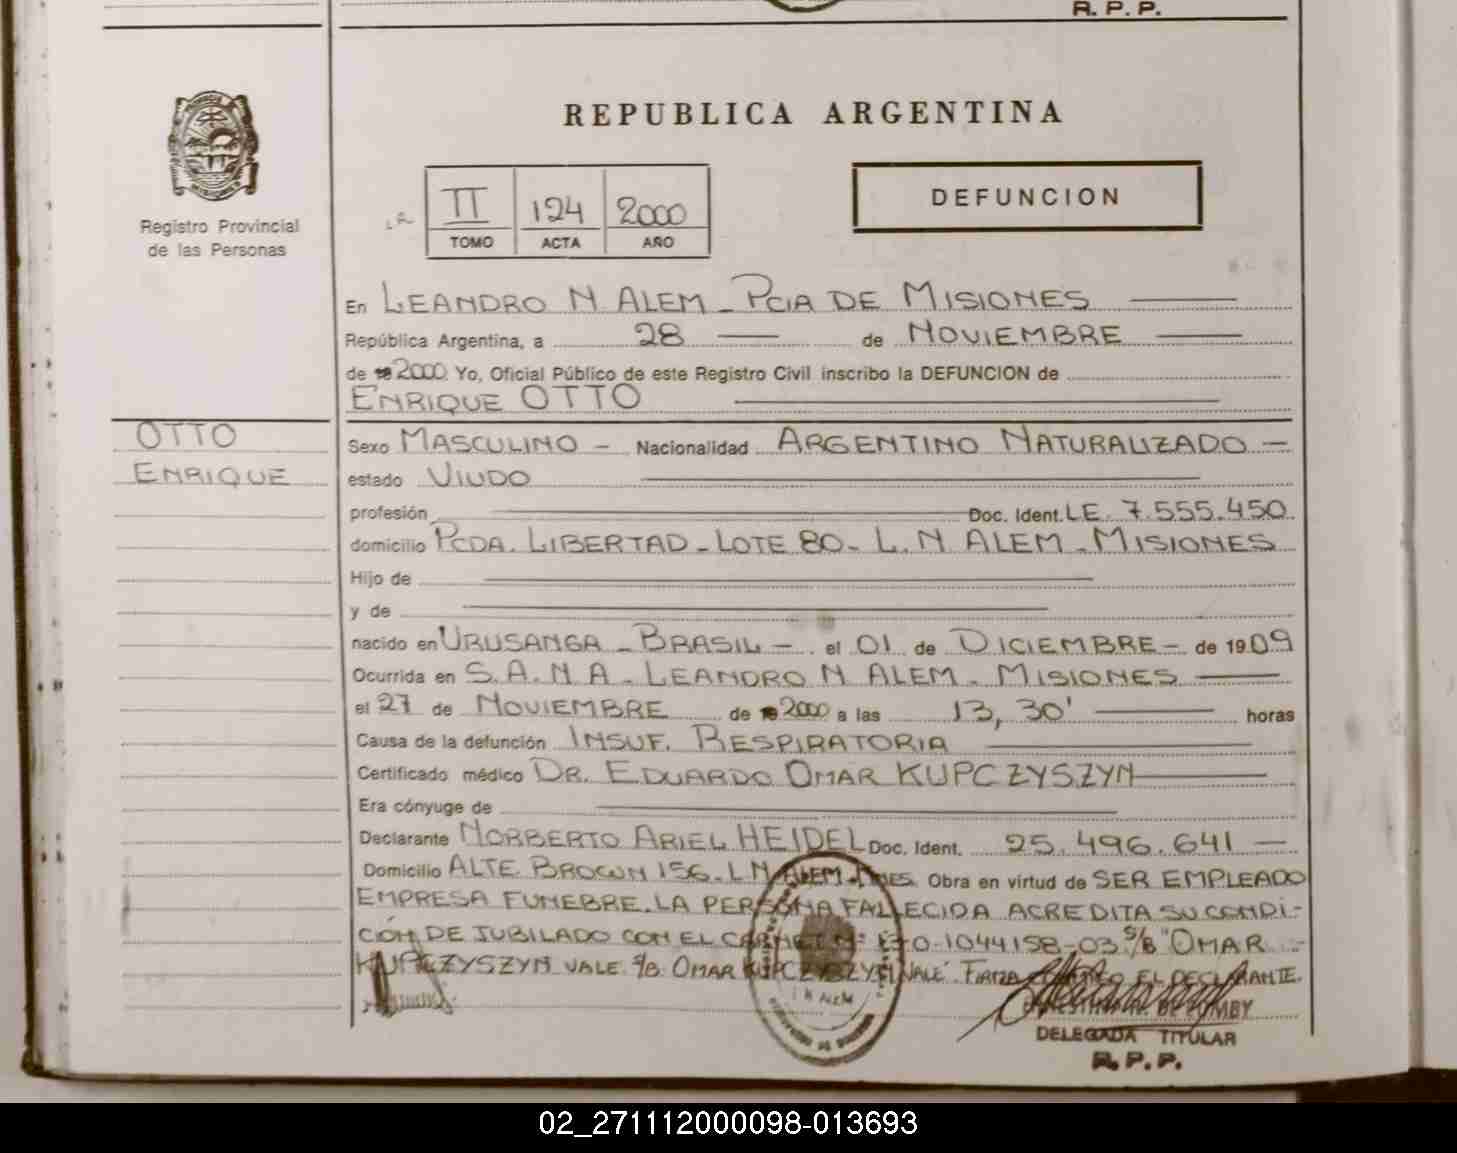 R. P. P.
REPUBLICA ARGENTINA
Registro Provincial
de las Personas
II 124 2000
TOMO ACTA AÑO
DEFUNCION
En LEANDRO N ALEM - PCIA DE MISIONES
República Argentina, a 28 de NOVIEMBRE
de 2000 Yo, Oficial Público de este Registro Civil inscribo la DEFUNCION de
ENRIQUE OTTO
OTTO
ENRIQUE
Sexo MASCULINO - Nacionalidad ARGENTINO NATURALIZADO -
estado VIUDO
profesión Doc. Ident. LE. 7.555.450
domicilio PCDA. LIBERTAD - LOTE 80 - L. N ALEM - MISIONES
Hijo de
y de
nacido en URUSANGA - BRASIL - el 01 de DICIEMBRE - de 1909
Ocurrida en S.A.N.A. - LEANDRO N ALEM - MISIONES
el 27 de NOVIEMBRE de 2000 a las 13,30' horas
Causa de la defunción INSUF. RESPIRATORIA
Certificado médico DR. EDUARDO OMAR KUPCZYSZYN
Era cónyuge de
Declarante NORBERTO ARIEL HEIDEL Doc. Ident. 25.496.641 -
Domicilio ALTE BROWN 156 - L N ALEM - MNES. Obra en virtud de SER EMPLEADO
EMPRESA FUNEBRE. LA PERSONA FALLECIDA ACREDITA SU CONDI-
CIÓN DE JUBILADO CON EL CARNET Nº 170-1044158-03 S/B "OMAR
KUPCZYSZYN VALE S/B OMAR KUPCZYSZYN VALE". FIRMA EL DECLARANTE.
L N ALEM
DELEGADA TITULAR
R. P. P.
02_271112000098-013693